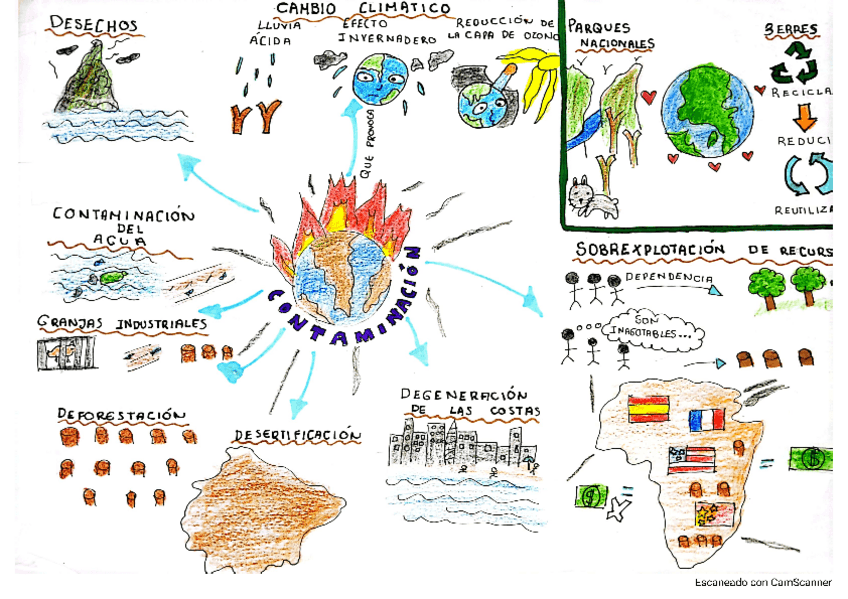 CAMBIO CLIMÁTICO
DESECHOS
LLUVIA
ÁCIDA
EFECTO
INVERNADERO
REDUCCIÓN DE
LA CAPA DE OZONO
PARQUES
NACIONALES
3 ERRES
RECICLA
REDUCI
REUTILIZA
QUE PROVOCA
CONTAMINACIÓN
DEL
AGUA
CONTAMINACIÓN
GRANJAS INDUSTRIALES
DEFORESTACIÓN
DESERTIFICACIÓN
DEGENERACIÓN
DE LAS COSTAS
SOBREXPLOTACIÓN DE RECURS
DEPENDENCIA
SON
INAGOTABLES...
Escaneado con CamScanner